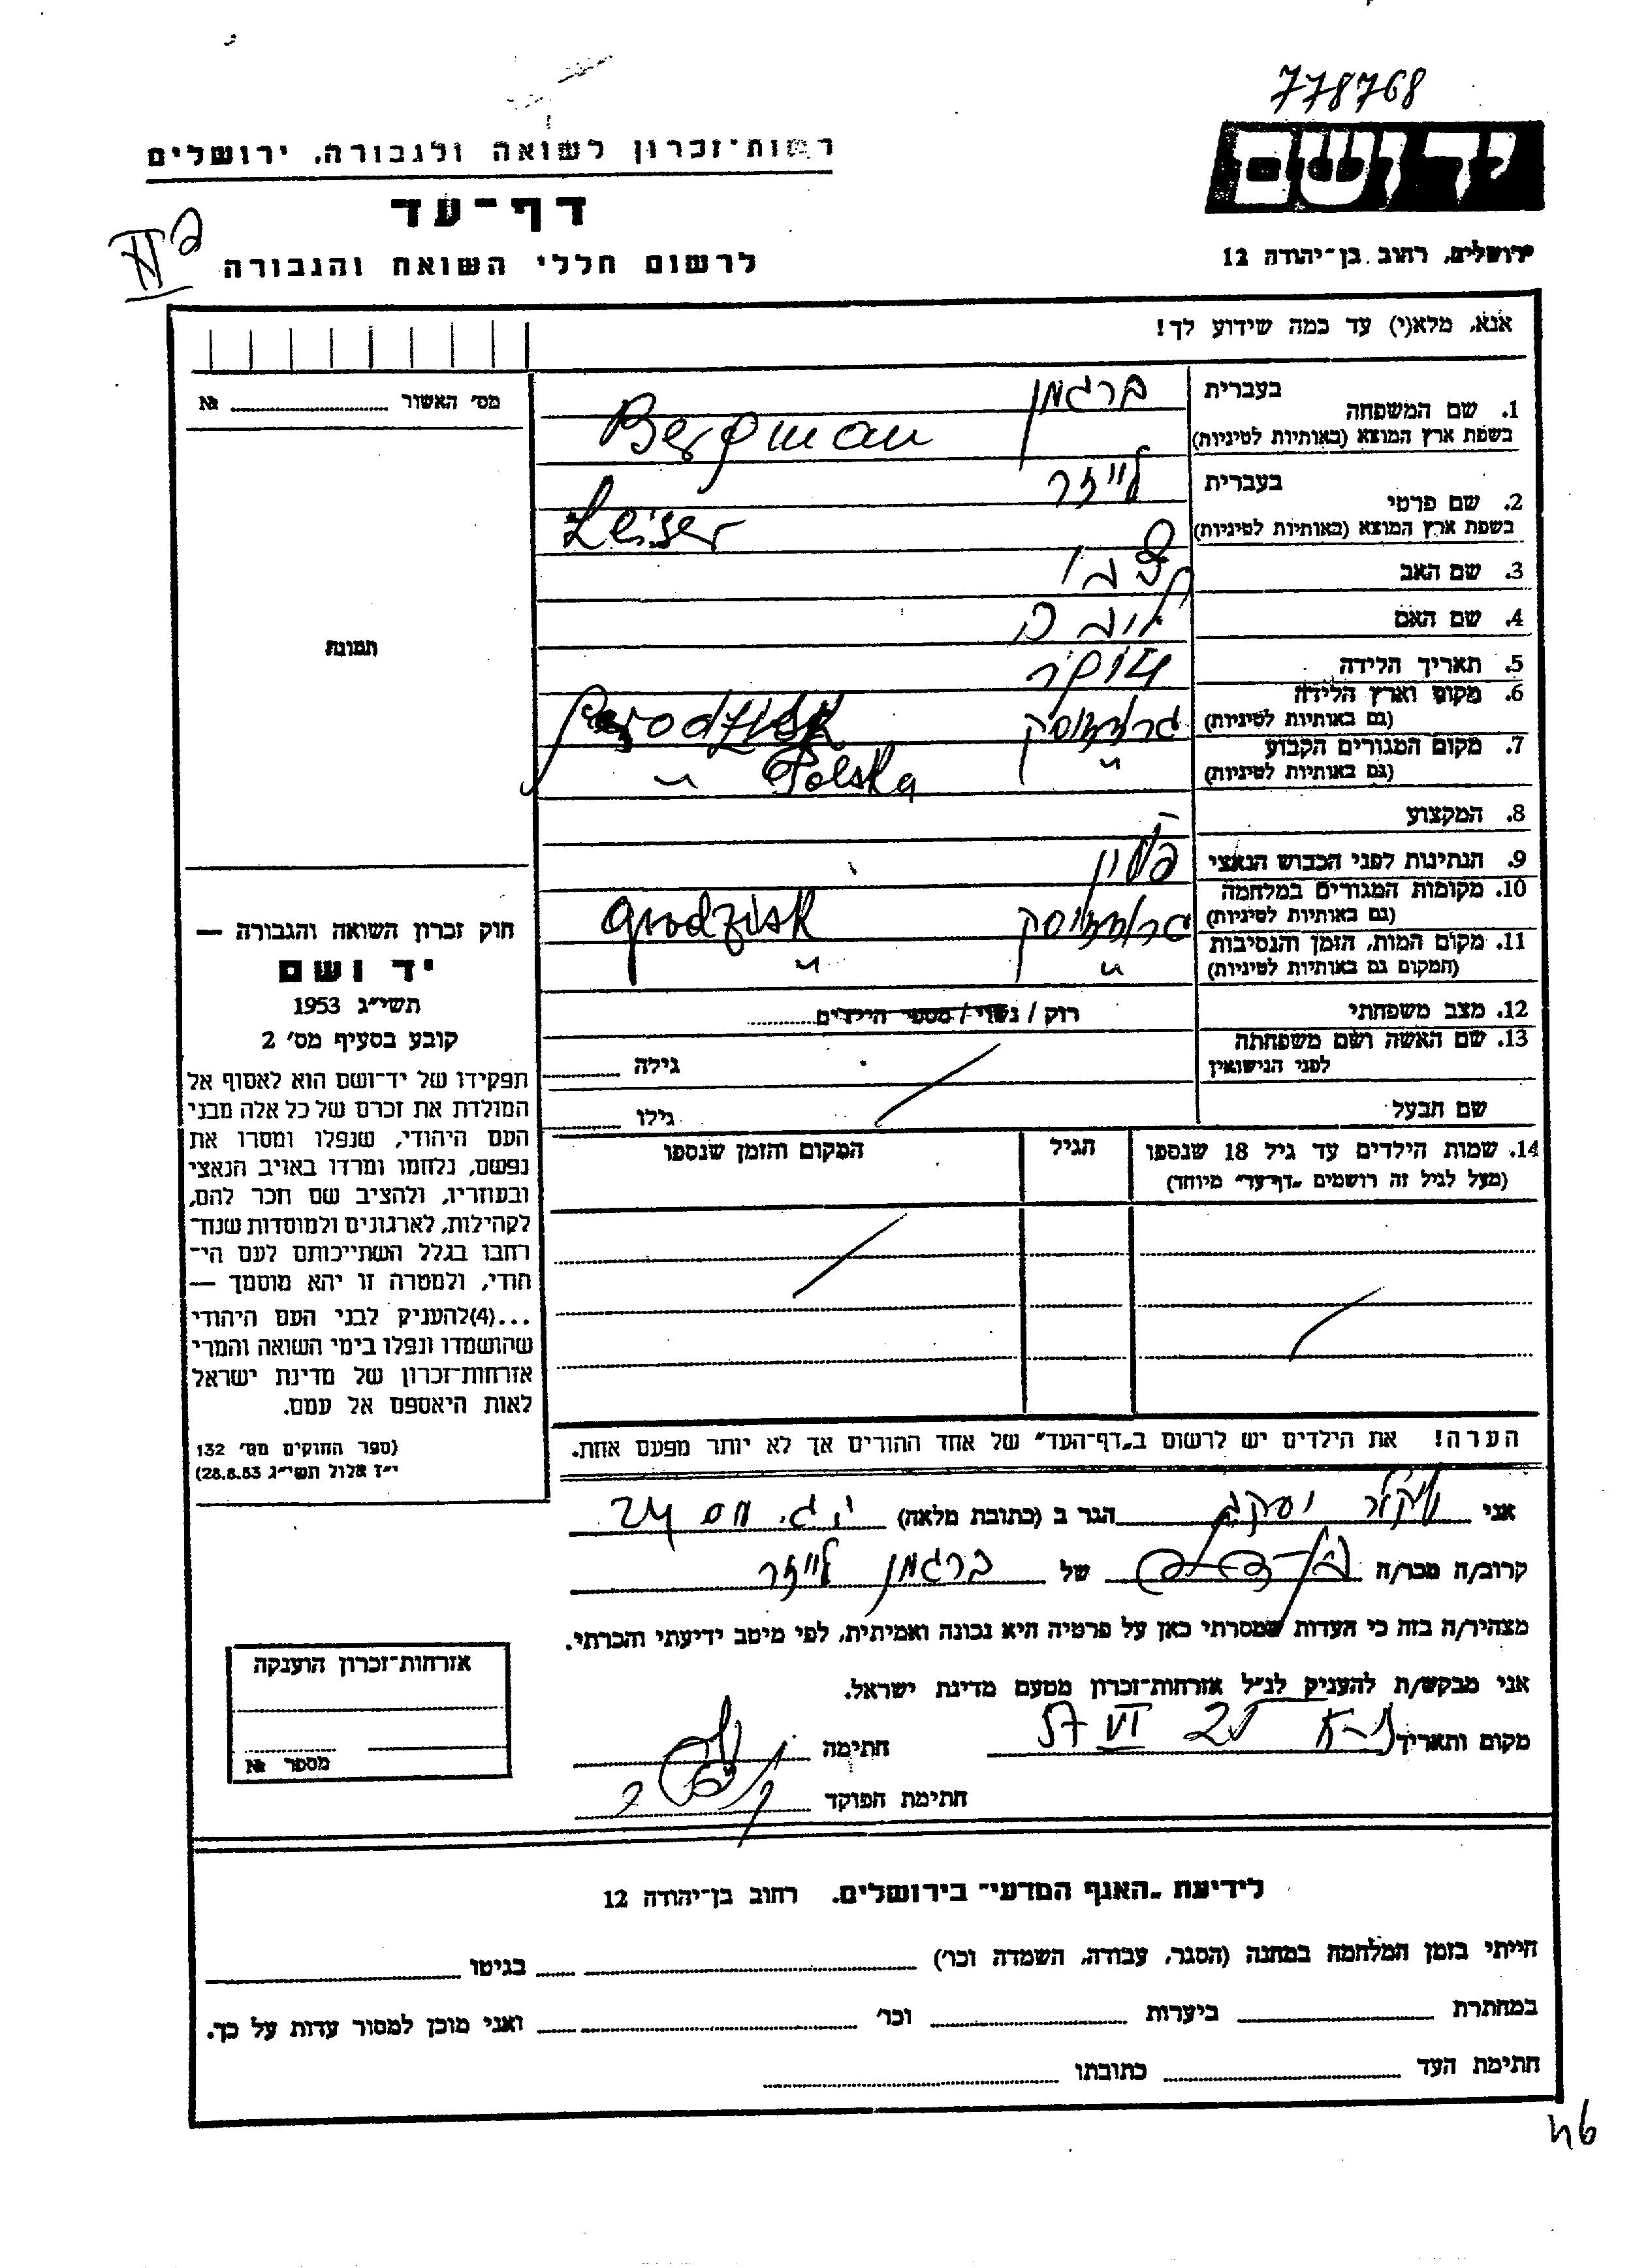 778768
יד ושם
ירושלים, רחוב בן־יהודה 12
רשות־זכרון לשואה ולגבורה, ירושלים
דף־עד
לרשום חללי השואה והגבורה
אנא, מלא(י) עד כמה שידוע לך!
מס׳ האשור № 
תמונת
1. שם המשפחה
בעברית ברגמן
בשפת ארץ המוצא (באותיות לטיניות) Bergman
2. שם פרטי
בעברית לייזר
בשפת ארץ המוצא (באותיות לטיניות) Leiser
3. שם האב
4. שם האם
5. תאריך הלידה
6. מקום וארץ הלידה
(גם באותיות לטיניות)
7. מקום המגורים הקבוע
(גם באותיות לטיניות) " " Polska
8. המקצוע
9. הנתינות לפני הכבוש הנאצי פולין
10. מקומות המגורים במלחמה
(גם באותיות לטיניות) Grodzisk
11. מקום המות, הזמן והנסיבות
(המקום גם באותיות לטיניות) " "
12. מצב משפחתי רוק / נשוי / מספר הילדים
13. שם האשה ושם משפחתה
לפני הנישואין גילה
שם הבעל גילו
14. שמות הילדים עד גיל 18 שנספו הגיל המקום והזמן שנספו
(מעל לגיל זה רושמים „דף־עד" מיוחד)
הערה! את הילדים יש לרשום ב„דף־העד" של אחד ההורים אך לא יותר מפעם אחת.
חוק זכרון השואה והגבורה —
יד ושם
תשי״ג 1953
קובע בסעיף מס׳ 2
תפקידו של יד־ושם הוא לאסוף אל
המולדת את זכרם של כל אלה מבני
העם היהודי, שנפלו ומסרו את
נפשם, נלחמו ומרדו באויב הנאצי
ובעוזריו, ולהציב שם וזכר להם,
לקהילות, לארגונים ולמוסדות שנח־
רבו בגלל השתייכותם לעם הי־
הודי, ולמטרה זו יהא מוסמך —
...(4)להעניק לבני העם היהודי
שהושמדו ונפלו בימי השואה והמרי
אזרחות־זכרון של מדינת ישראל
לאות היאספם אל עמם.
(ספר החוקים מס׳ 132
י״ז אלול תשי״ג 28.8.53)
אני הגר ב (כתובת מלאה)
קרוב/ה מכר/ה של ברגמן לייזר
מצהיר/ה בזה כי העדות שמסרתי כאן על פרטיה היא נכונה ואמיתית, לפי מיטב ידיעתי והכרתי.
אני מבקש/ת להעניק לנ״ל אזרחות־זכרון מטעם מדינת ישראל.
מקום ותאריך ת-א 25 VI 57 חתימה
חתימת הפוקד
אזרחות־זכרון הוענקה
מספר №
לידיעת „האגף המדעי" בירושלים. רחוב בן־יהודה 12
הייתי בזמן המלחמה במחנה (הסגר, עבודה, השמדה וכו׳) בגיטו
במחתרת ביערות וכו׳ ואני מוכן למסור עדות על כך.
חתימת העד כתובתו